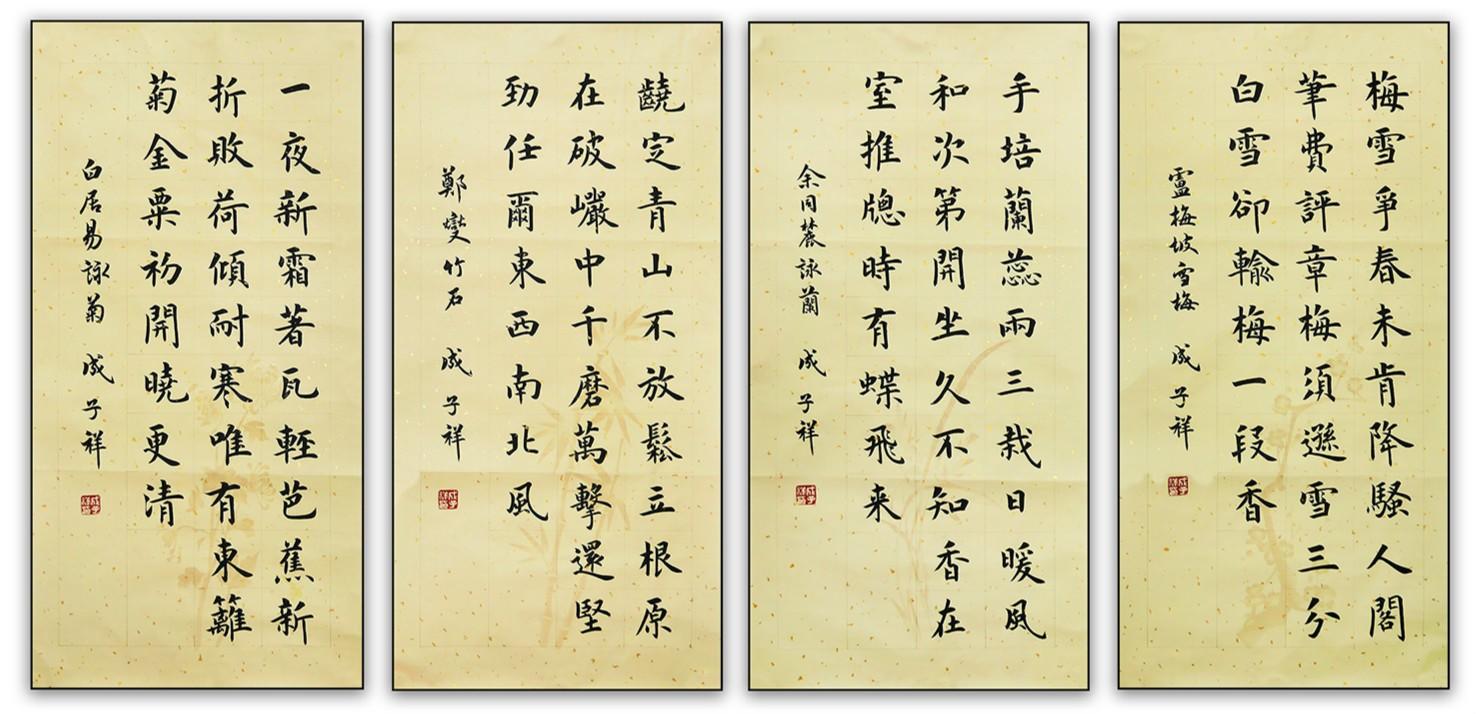 梅雪爭春未肯降騷人閣
筆費評章梅須遜雪三分
白雪卻輸梅一段香
盧梅坡雪梅 成子祥
手培蘭蕊兩三栽日暖風
和次第開坐久不知香在
室推牕時有蝶飛来
余同麓詠蘭 成子祥
定青山不放鬆立根原
在破巗中千磨萬擊還堅
勁任爾東西南北風
鄭燮竹石 成子祥
一夜新霜著瓦輕芭蕉新
折敗荷傾耐寒唯有東籬
菊金粟初開曉更清
白居易詠菊 成子祥